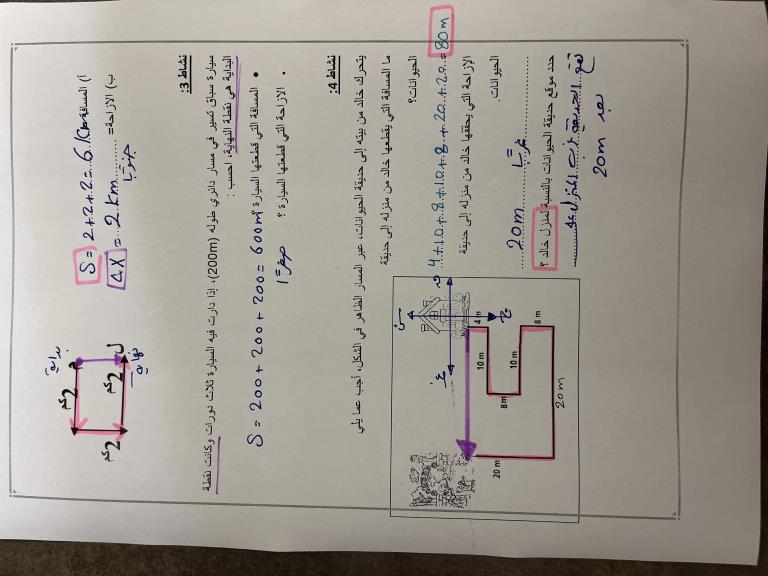 أ) المسافة S = 2+2+2 = 6 Km
ب) الازاحة = ΔX = 2 Km
جنوبًا
بداية
م
2 كم
2 كم
2 كم
ل
نهاية
نشاط 3:
سيارة سباق تسير في مسار دائري طوله (200m)، إذا دارت فيه السيارة ثلاث دورات وكانت نقطة
البداية هي نقطة النهاية، احسب :
• المسافة التي قطعتها السيارة ؟ S = 200 + 200 + 200 = 600m
• الازاحة التي قطعتها السيارة ؟ صفرًا
نشاط 4:
يتحرك خالد من بيته إلى حديقة الحيوانات، عبر المسار الظاهر في الشكل، أجب عما يلي
ما المسافة التي يقطعها خالد من منزله إلى حديقة
الحيوانات؟
4+10+8+10+8+20+20 = 80m
الإزاحة التي يحققها خالد من منزله إلى حديقة
الحيوانات.
20m غربًا
حدد موقع حديقة الحيوانات بالنسبة لمنزل خالد ؟
تقع الحديقة غرب المنزل على
بعد 20m
ش
ق
غ
ج
4 m
10 m
8 m
10 m
8 m
20 m
20 m